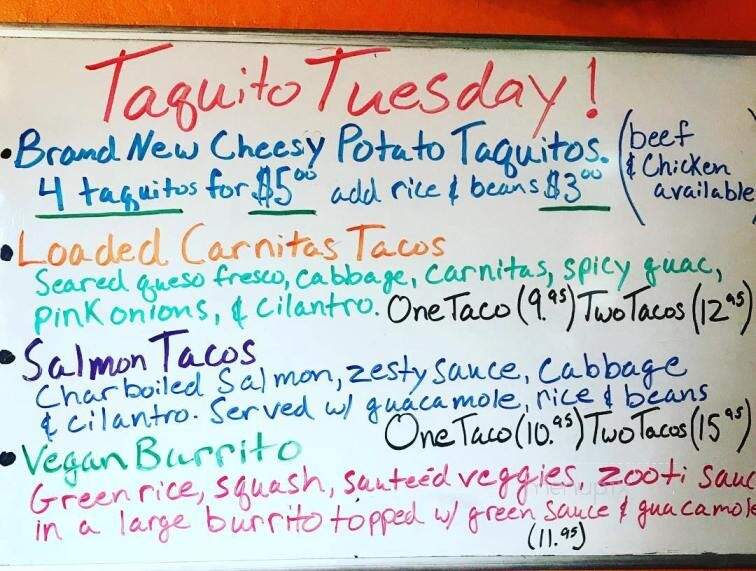 Taquito Tuesday!
• Brand New Cheesy Potato Taquitos. (beef
& Chicken
available)
4 taquitos for $5.00 add rice & beans $3.00
• Loaded Carnitas Tacos
Seared queso fresco, cabbage, carnitas, spicy guac,
pink onions, & cilantro. One Taco (9.95) Two Tacos (12.95)
• Salmon Tacos
Charboiled Salmon, zesty sauce, cabbage
& cilantro. Served w/ guacamole, rice & beans
One Taco (10.95) Two Tacos (15.95)
• Vegan Burrito
Green rice, squash, sauteéd veggies, zooti sauc
in a large burrito topped w/ green sauce & guacamole
(11.95)